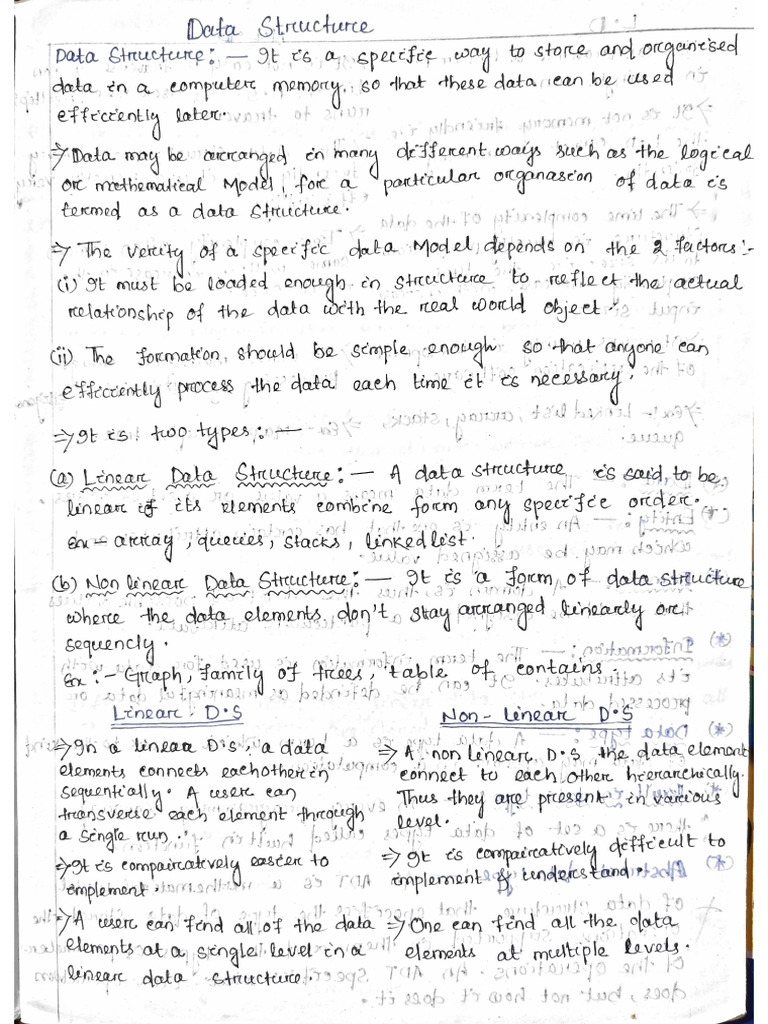 Data Structure
Data Structure:— It is a specific way to store and organised
data in a computer memory. so that these data can be used
efficiently later.
⇒ Data may be arranged in many different ways such as the logical
or mathematical Model, for a particular organasion of data is
termed as a data structure.
⇒ The verity of a specific data Model depends on the 2 factors:-
(i) It must be loaded enough in structure to reflect the actual
relationship of the data with the real world object.
(ii) The formation should be simple enough so that anyone can
efficiently process the data each time it is necessary.
⇒ It is two types:—
(a) Linear Data Structure:— A data structure is said to be
linear if its elements combine form any specific order.
Ex - array, queries, stacks, linked list.
(b) Non linear Data Structure:— It is a form of data structure
where the data elements don't stay arranged linearly or
sequencly.
Ex:- Graph, family of trees, table of contains.
Linear D.S
Non-Linear D.S
⇒ In a linear D.S, a data
elements connects eachother in
sequentially. A user can
transverse each element through
a single run.
⇒ It is compairatively easier to
implement.
⇒ A user can find all of the data
elements at a single level in a
linear data structure.
⇒ A non linear D.S the data element
connect to each other hierarchically.
Thus they are present in various
level.
⇒ It is compairatively difficult to
implement & understand.
⇒ One can find all the data
elements at multiple levels.